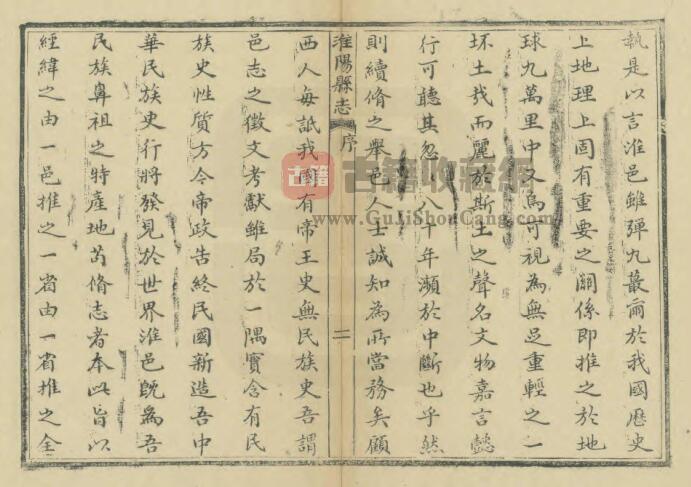 執是以言淮邑雖彈九蕞爾於我國歷史
上地理上固有重要之關係即推之於地
球九萬里中又烏可視為無足重輕之一
坏土哉而麗於斯土之聲名文物嘉言懿
行可聽其忽八十年瀕於中斷也乎然
則續脩之舉邑人士誠知為所當務矣顧
淮陽縣志 序 二
西人每詆我國有帝王史無民族史吾謂
邑志之徵文考獻雖局於一隅實含有民
族史性質方今帝政告終民國新造吾中
華民族史行將發見於世界淮邑既為吾
民族鼻祖之特產地苟脩志者本此旨以
經緯之由一邑推之一省由一省推之全
古籍 古籍收藏網
www.GuJiShouCang.com